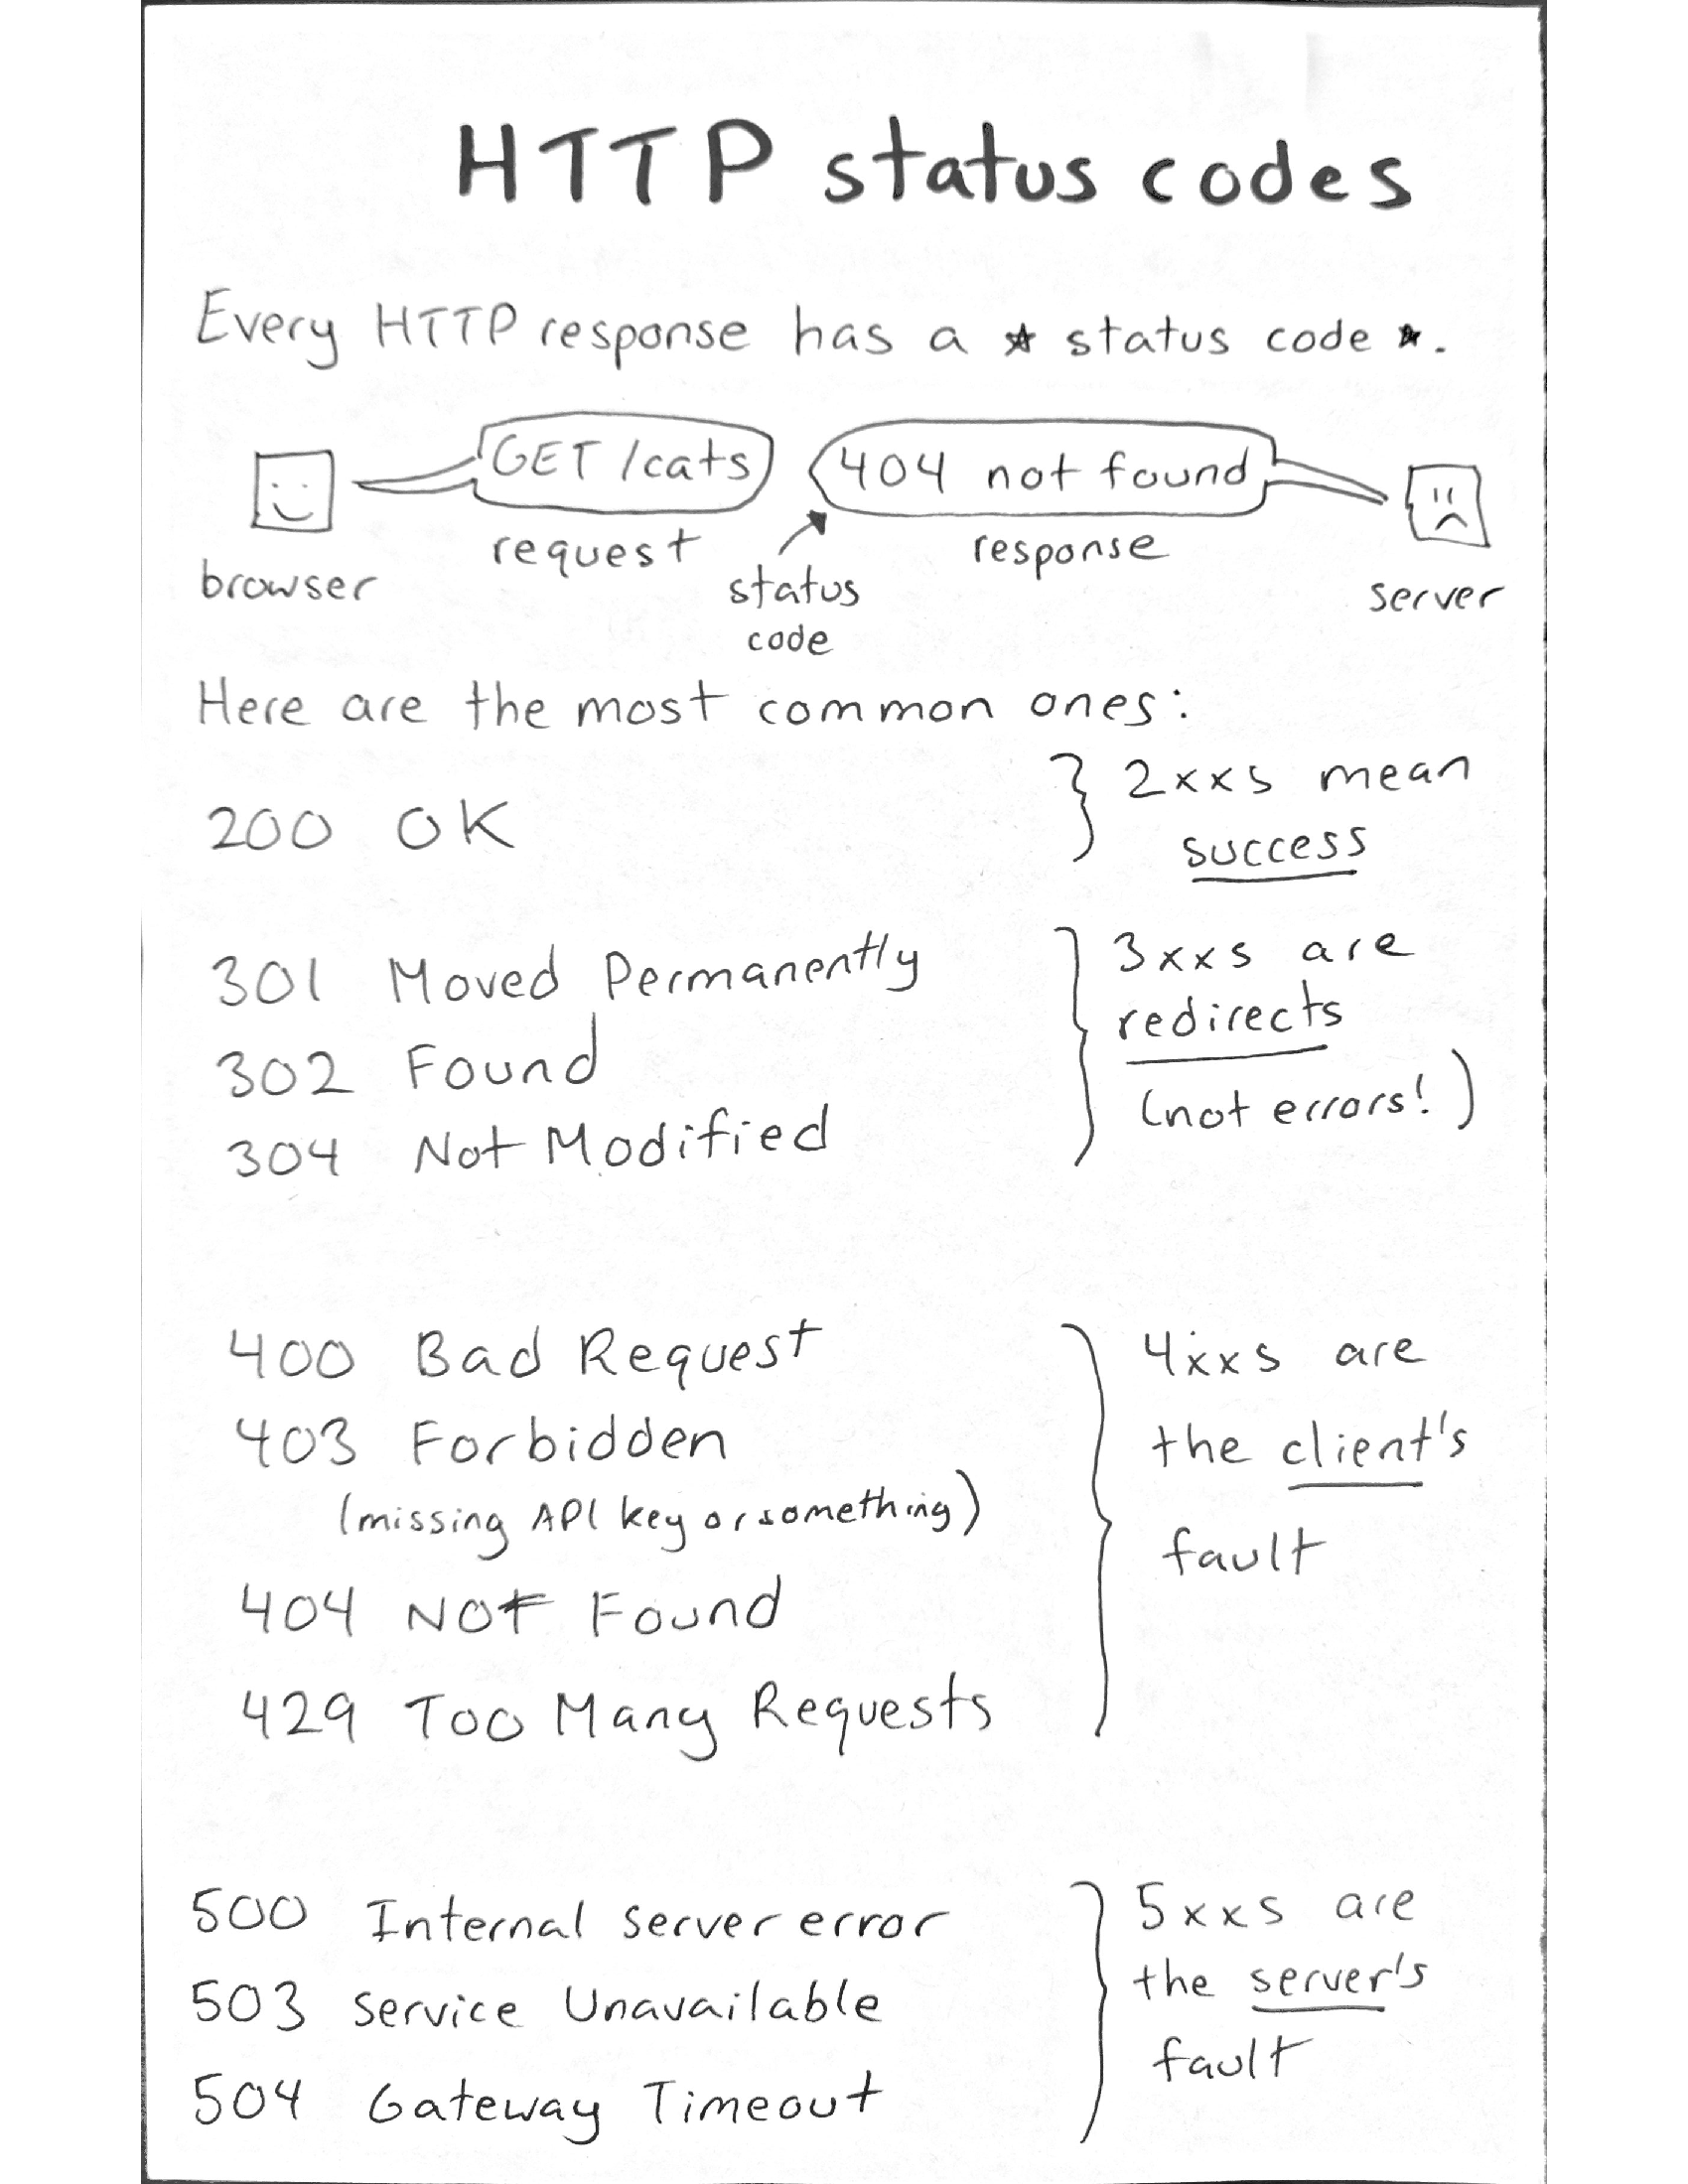 HTTP status codes
Every HTTP response has a ★ status code ★.
GET /cats
404 not found
browser
request
status
code
response
server
Here are the most common ones:
200 OK
2xxs mean
success
301 Moved Permanently
302 Found
304 Not Modified
3xxs are
redirects
(not errors!)
400 Bad Request
403 Forbidden
(missing API key or something)
404 NOT Found
429 Too Many Requests
4xxs are
the client's
fault
500 Internal server error
503 Service Unavailable
504 Gateway Timeout
5xxs are
the server's
fault